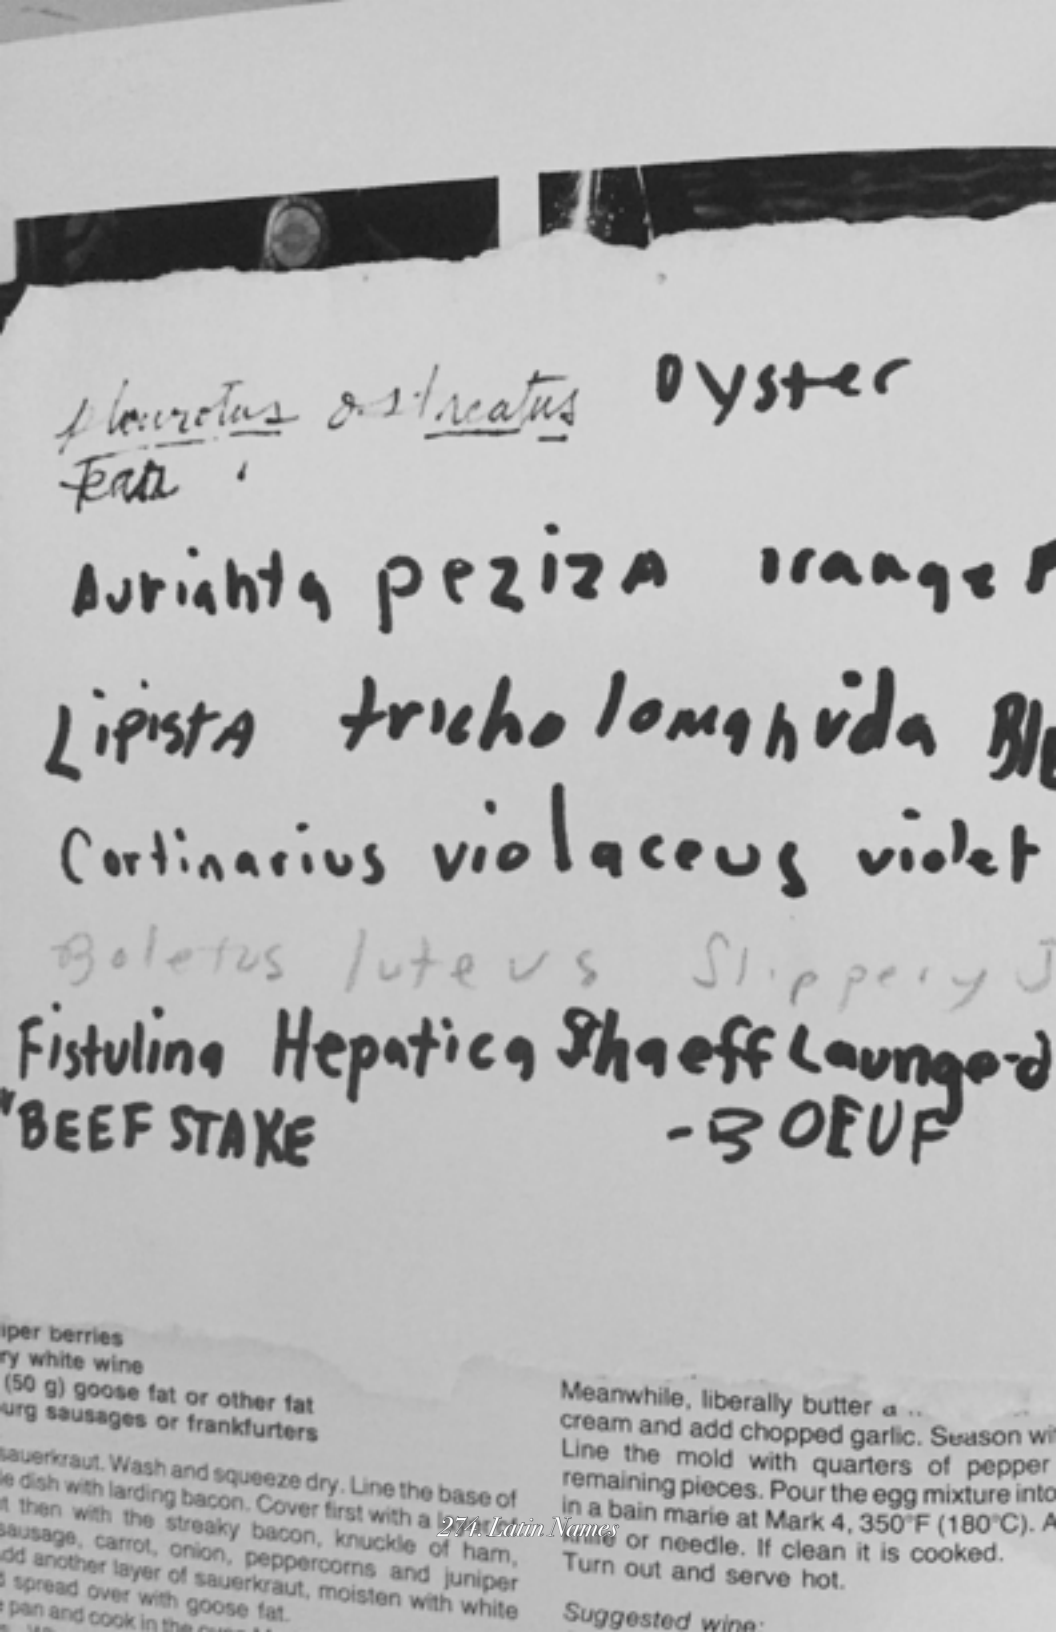 pleurotus ostreatus Oyster
Auriahta pezizA
LipistA tricholoma nuda
Cortinarius violaceus violet
Boletus luteus Slippery J
Fistulina Hepatica Shaeff
"BEEF STAKE -BOEUF
iper berries
ry white wine
(50 g) goose fat or other fat
urg sausages or frankfurters
sauerkraut. Wash and squeeze dry. Line the base of
le dish with larding bacon. Cover first with a
t then with the streaky bacon, knuckle of ham,
sausage, carrot, onion, peppercorns and juniper
dd another layer of sauerkraut, moisten with white
spread over with goose fat.
pan and cook in the
Meanwhile, liberally butter a
cream and add chopped garlic. Season wi
Line the mold with quarters of pepper
remaining pieces. Pour the egg mixture into
in a bain marie at Mark 4, 350°F (180°C). A
knife or needle. If clean it is cooked.
Turn out and serve hot.
Suggested wine:
274. Latin Names